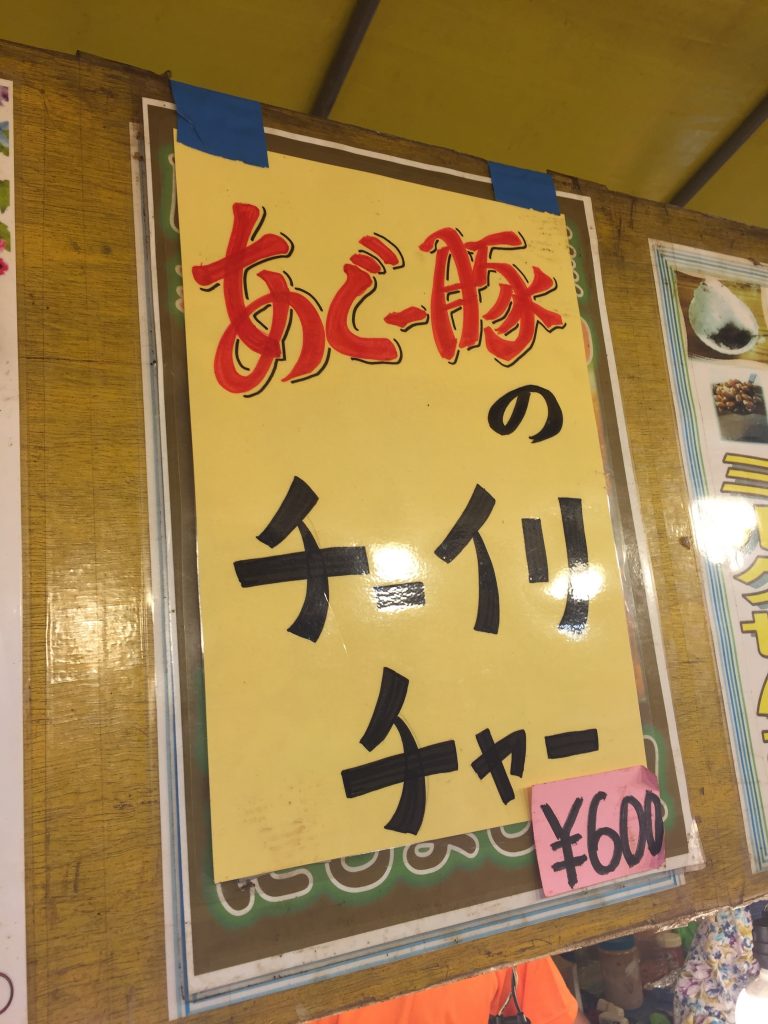 あぐー豚
の
チーイリ
チャー
¥600